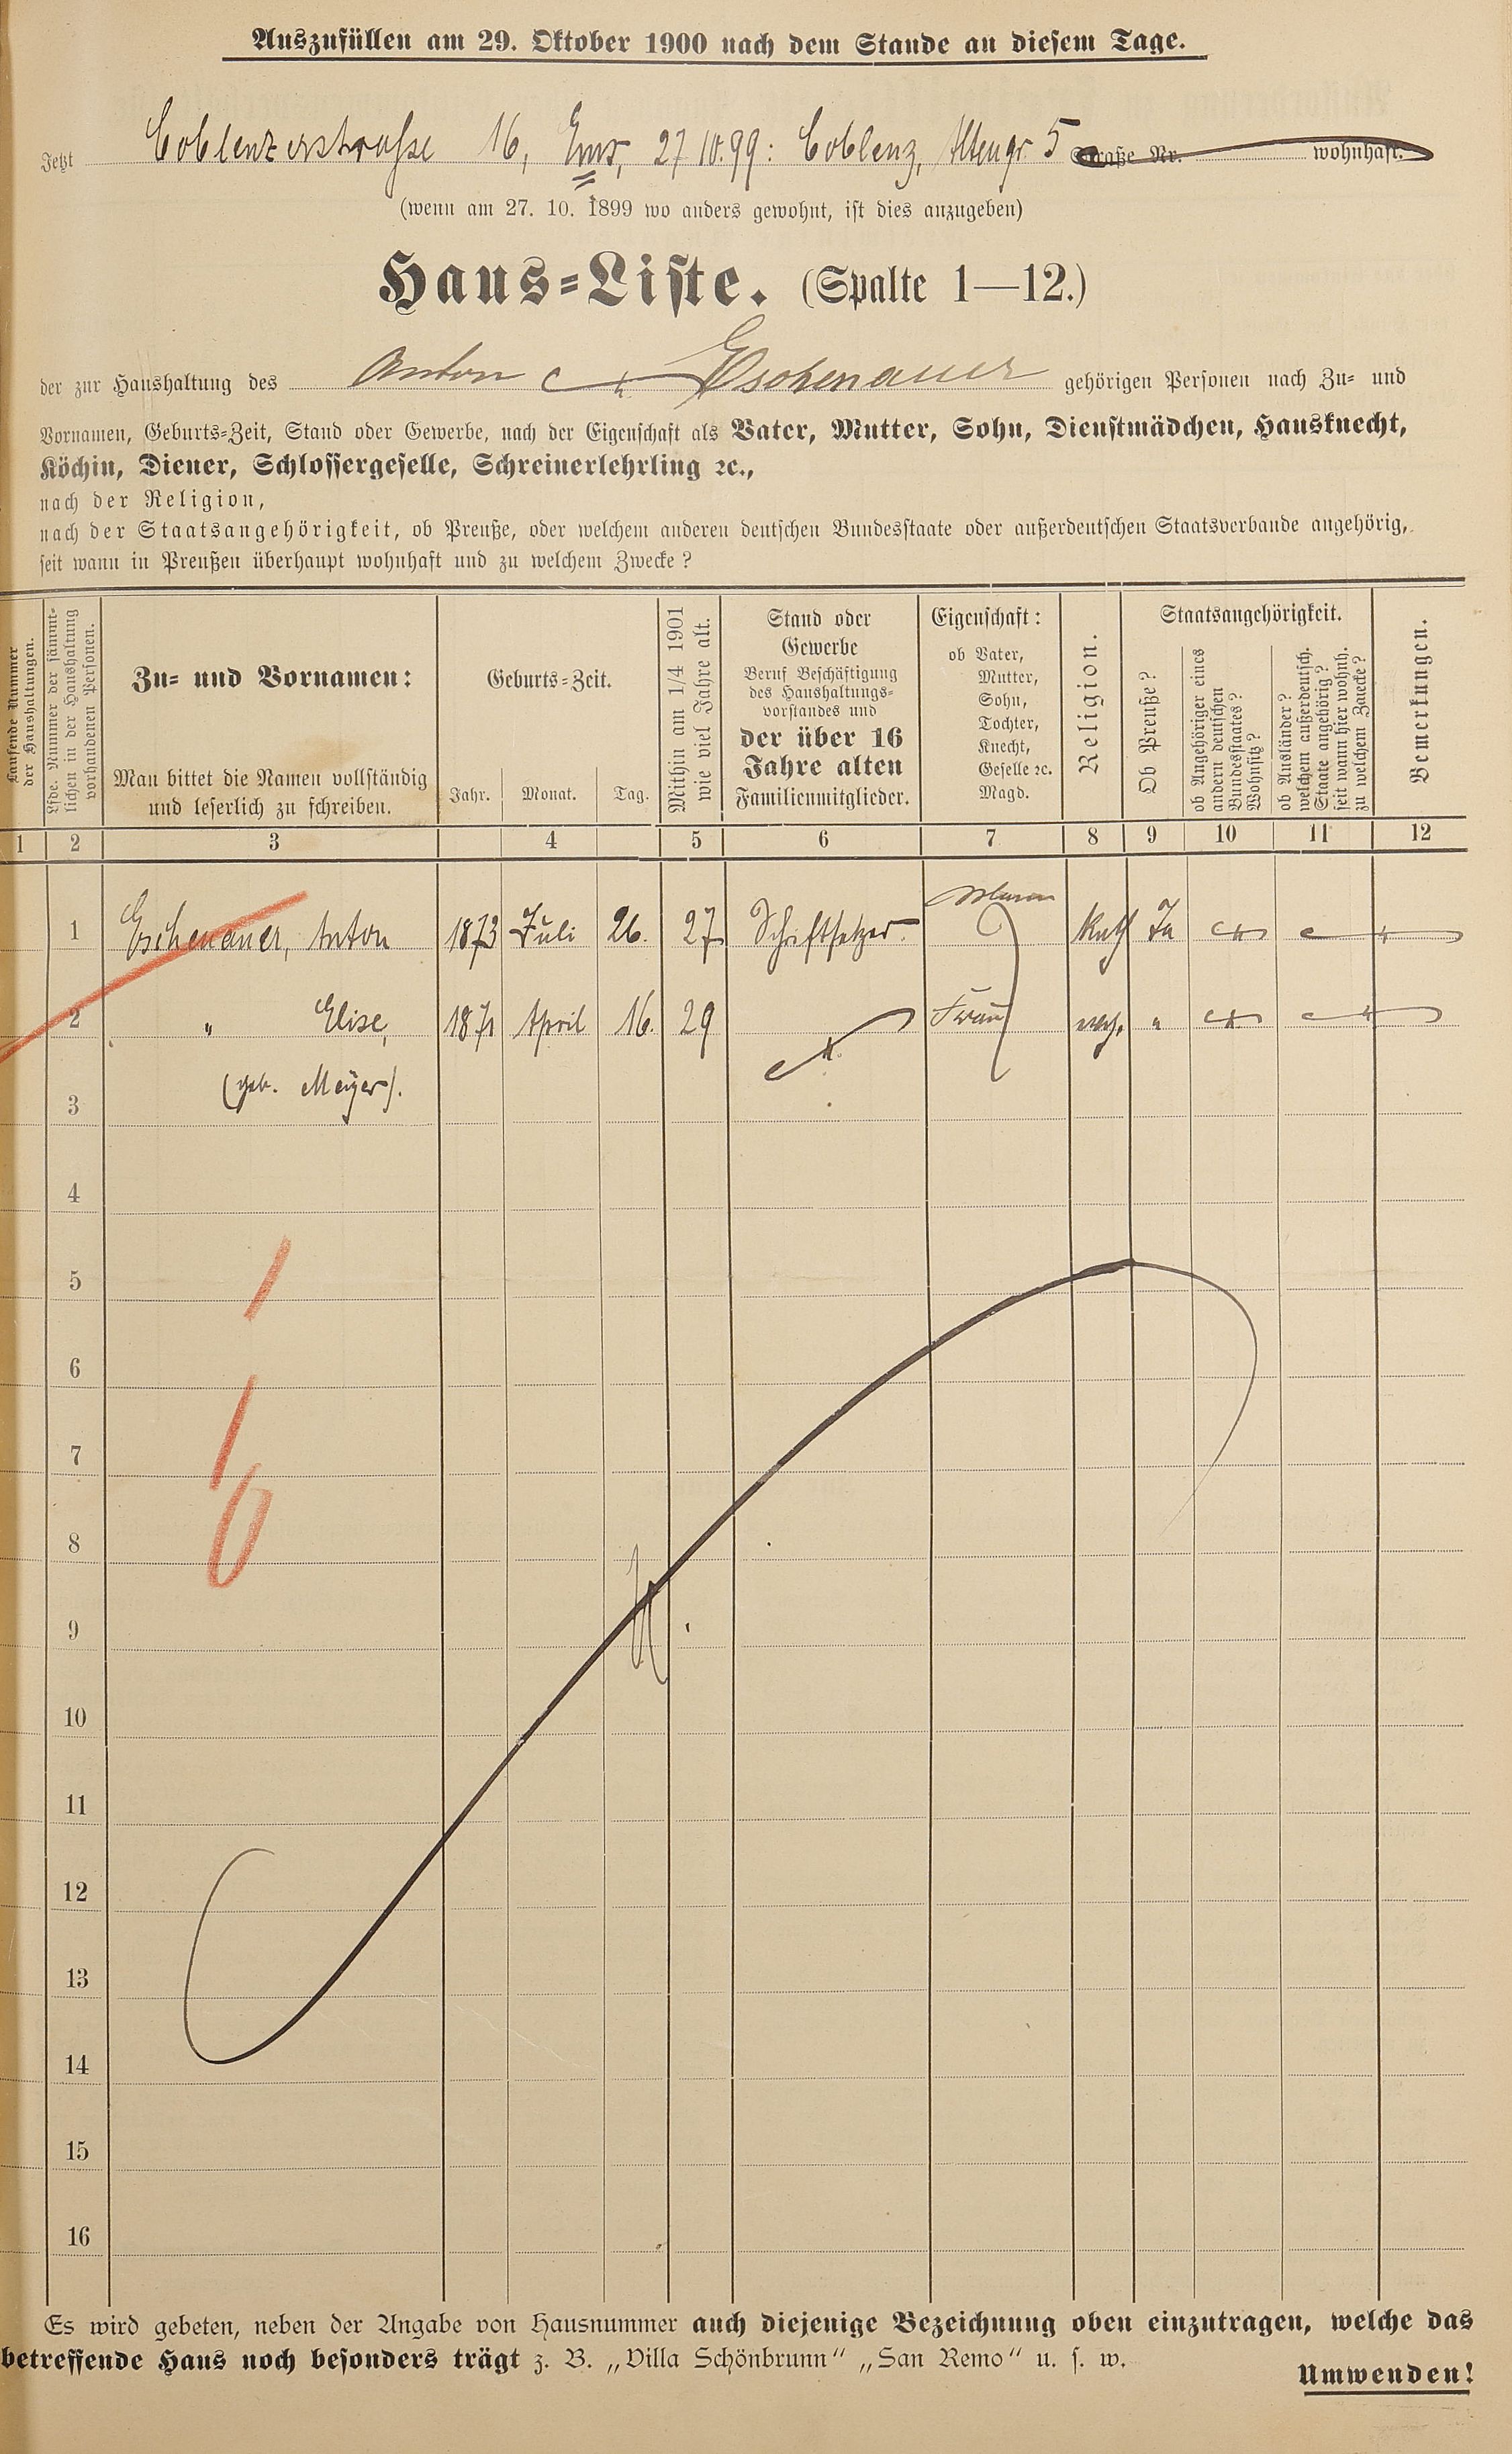 Auszufüllen am 29. Oktober 1900 nach dem Stande an diesem Tage.
Jetzt Coblenzerstrasse 16, Ems, 27.10.99: Coblenz, Altengr. 5 Straße Nr. wohnhaft.
(wenn am 27. 10. 1899 wo anders gewohnt, ist dies anzugeben)
Haus-Liste. (Spalte 1—12.)
der zur Haushaltung des Anton Eschenauer gehörigen Personen nach Zu- und
Vornamen, Geburts-Zeit, Stand oder Gewerbe, nach der Eigenschaft als Vater, Mutter, Sohn, Dienstmädchen, Hausknecht,
Köchin, Diener, Schlossergeselle, Schreinerlehrling ꝛc.,
nach der Religion,
nach der Staatsangehörigkeit, ob Preuße, oder welchem anderen deutschen Bundesstaate oder außerdeutschen Staatsverbande angehörig,
seit wann in Preußen überhaupt wohnhaft und zu welchem Zwecke?
Laufende Nummer
der Haushaltungen.
Lfde. Nummer der sämmt-
lichen in der Haushaltung
vorhandenen Personen.
Zu- und Vornamen:
Man bittet die Namen vollständig
und leserlich zu schreiben.
Geburts-Zeit.
Jahr. Monat. Tag.
Mithin am 1/4 1901
wie viel Jahre alt.
Stand oder
Gewerbe
Beruf Beschäftigung
des Haushaltungs-
vorstandes und
der über 16
Jahre alten
Familienmitglieder.
Eigenschaft:
ob Vater,
Mutter,
Sohn,
Tochter,
Knecht,
Geselle ꝛc.
Magd.
Religion.
Staatsangehörigkeit.
Ob Preuße?
ob Angehöriger eines
andern deutschen
Bundesstaates?
Wohnsitz?
ob Ausländer?
welchem außerdeutsch.
Staate angehörig?
seit wann hier wohnh.
zu welchem Zwecke?
Bemerkungen.
1 2 3 4 5 6 7 8 9 10 11 12
1 Eschenauer, Anton 1873 Juli 26. 27 Schriftsetzer Mann Kath Ja
2 " Elise, 1871 April 16. 29 Frau "
(geb. Meyer).
3
4
5
6
7
8
9
10
11
12
13
14
15
16
Es wird gebeten, neben der Angabe von Hausnummer auch diejenige Bezeichnung oben einzutragen, welche das
betreffende Haus noch besonders trägt z. B. „Villa Schönbrunn“ „San Remo“ u. s. w.
Umwenden!